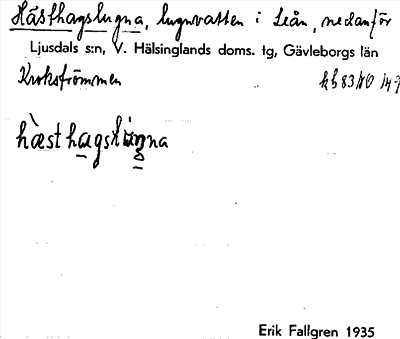 Hästhagslugna, lugnvatten i Leån, nedanför
Ljusdals s:n, V. Hälsinglands doms. tg, Gävleborgs län
Krokströmmen
hæsthagsluŋna
Erik Fallgren 1935